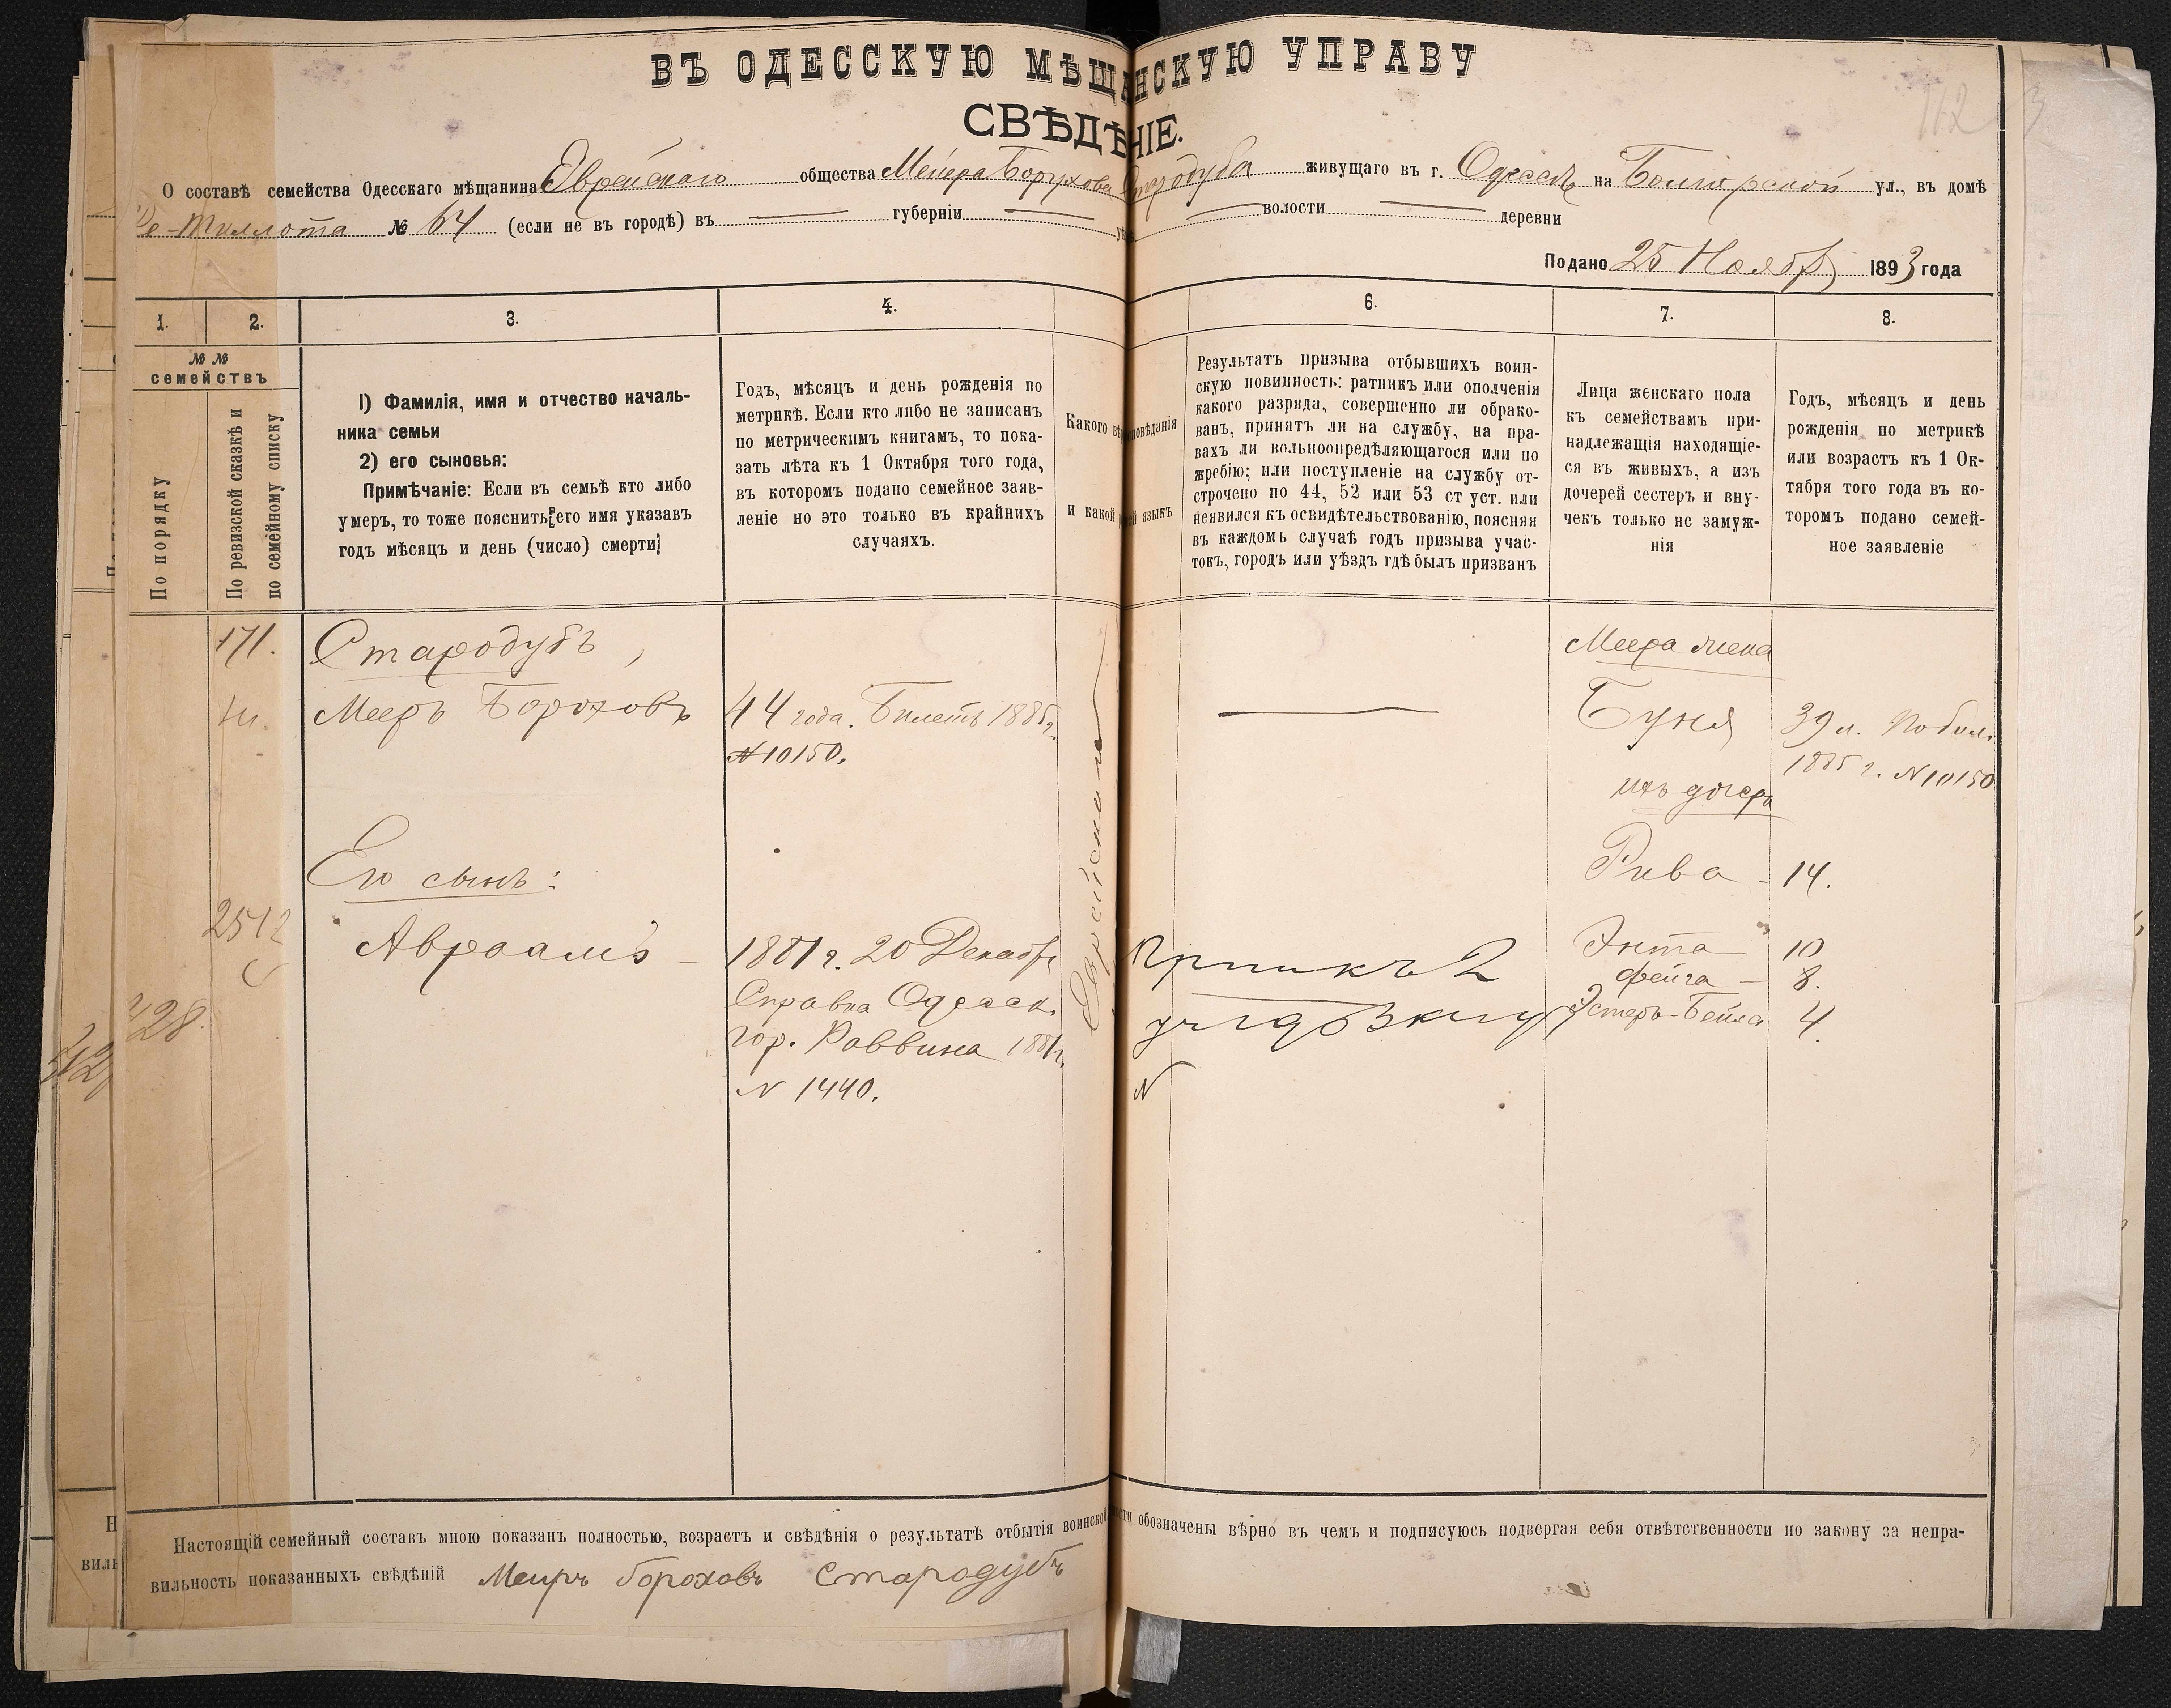 ВЪ ОДЕССКУЮ МѢЩАНСКУЮ УПРАВУ
СВѢДѢНІЕ.
О составѣ семейства Одесскаго мѣщанина Еврейскаго общества Мейера Борухова Стародуба живущаго въ г. Одессѣ на Болгарской ул., въ домѣ
№ 64 (если не въ городѣ) въ губерніи волости деревни
Подано 25 Ноября 1893 года
1. 2. 3. 4. 6. 7. 8.
№ №
семействъ
По порядку
По ревизской сказкѣ и
по семейному списку
1) Фамилія, имя и отчество началь-
ника семьи
2) его сыновья:
Примѣчаніе: Если въ семьѣ кто либо
умеръ, то тоже пояснить его имя указавъ
годъ мѣсяцъ и день (число) смерти
Годъ, мѣсяцъ и день рожденія по
метрикѣ. Если кто либо не записанъ
по метрическимъ книгамъ, то пока-
зать лѣта къ 1 Октября того года,
въ которомъ подано семейное заяв-
леніе но это только въ крайнихъ
случаяхъ.
Какого вѣроисповѣданія
и какой языкъ
Результатъ призыва отбывшихъ воин-
скую повинность: ратникъ или ополченія
какого разряда, совершенно ли обрако-
ванъ, принятъ ли на службу, на пра-
вахъ ли вольноопредѣляющагося или по
жребію; или поступленіе на службу от-
строчено по 44, 52 или 53 ст уст. или
неявился къ освидѣтельствованію, поясняя
въ каждомъ случаѣ годъ призыва учас-
токъ, городъ или уѣздъ гдѣ былъ призванъ
Лица женскаго пола
къ семействамъ при-
надлежащія находящіе-
ся въ живыхъ, а изъ
дочерей сестеръ и вну-
чекъ только не замуж-
нія
Годъ, мѣсяцъ и день
рожденія по метрикѣ
или возрастъ къ 1 Ок-
тября того года въ ко-
торомъ подано семей-
ное заявленіе
171. Стародубъ,
Мееръ Бороховъ
44 года. Билетъ 1885г.
№ 10150.
Еврейскаго
Меера жена
Буня 39 л. по бил.
1885 г. № 10150
ихъ дочери
Его сынъ:
Рива - 14.
2512
Авраамъ -
1881 г. 20 Декабр
Справка Одесск.
гор. Раввина 1881г.
№ 1440.
2
№
Энта 10
Фейга - 8.
Эстеръ-Бейла 4.
428.
Настоящій семейный составъ мною показанъ полностью, возрастъ и свѣдѣнія о результатѣ отбытія воинской обозначены вѣрно въ чемъ и подписуюсь подвергая себя отвѣтственности по закону за непра-
вильность показанныхъ свѣдѣній Меиръ Бороховъ Стародубъ